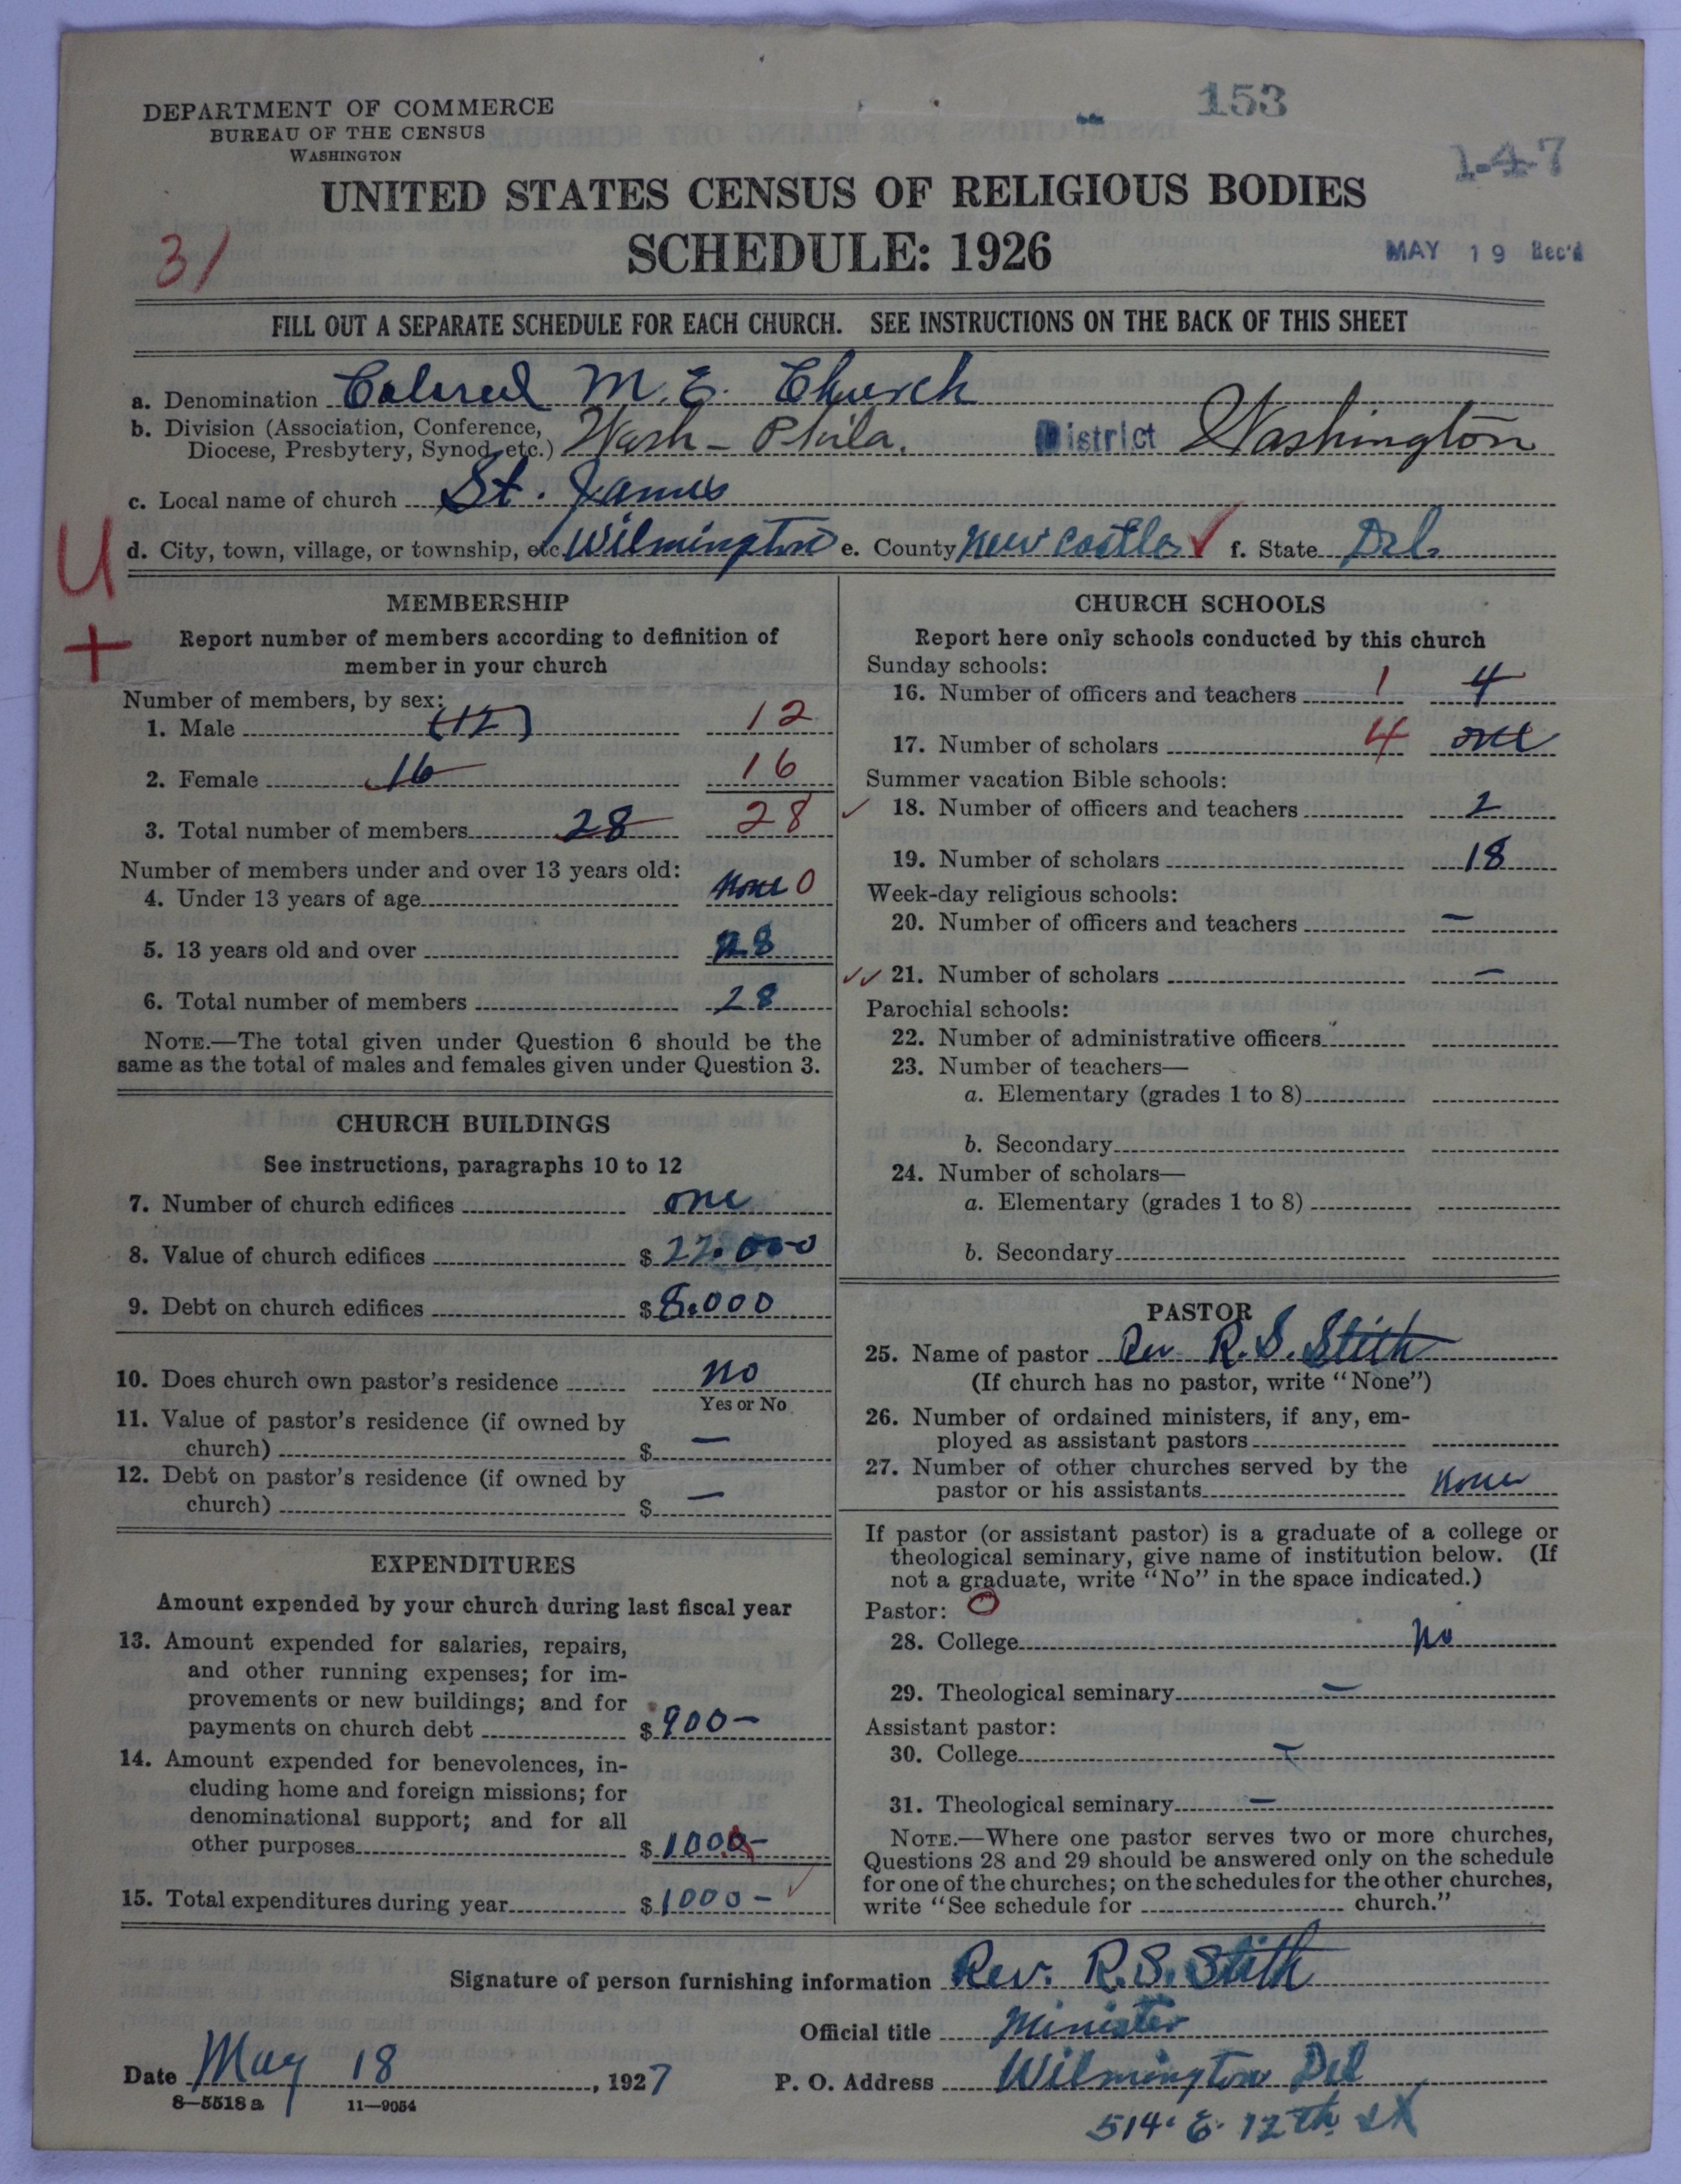 153
DEPARTMENT OF COMMERCE
BUREAU OF THE CENSUS
WASHINGTON
1-4-7
UNITED STATES CENSUS OF RELIGIOUS BODIES
SCHEDULE: 1926
31
MAY 19 Rec'd
FILL OUT A SEPARATE SCHEDULE FOR EACH CHURCH. SEE INSTRUCTIONS ON THE BACK OF THIS SHEET
a. Denomination Colored M. E. Church
b. Division (Association, Conference, Diocese, Presbytery, Synod, etc.) Wash - Phila. District Washington
c. Local name of church St. James
U
d. City, town, village, or township, etc. Wilmington e. County New Castle ✓ f. State Del.
+
MEMBERSHIP
Report number of members according to definition of
member in your church
Number of members, by sex:
1. Male (12) 12
2. Female 16 16
3. Total number of members 28 28
Number of members under and over 13 years old:
4. Under 13 years of age none 0
5. 13 years old and over 28
6. Total number of members 28
NOTE.—The total given under Question 6 should be the
same as the total of males and females given under Question 3.
CHURCH BUILDINGS
See instructions, paragraphs 10 to 12
7. Number of church edifices one
8. Value of church edifices $ 22.000
9. Debt on church edifices $ 8.000
10. Does church own pastor's residence no
Yes or No
11. Value of pastor's residence (if owned by
church) $ —
12. Debt on pastor's residence (if owned by
church) $ —
EXPENDITURES
Amount expended by your church during last fiscal year
13. Amount expended for salaries, repairs,
and other running expenses; for im-
provements or new buildings; and for
payments on church debt $ 900 -
14. Amount expended for benevolences, in-
cluding home and foreign missions; for
denominational support; and for all
other purposes $ 100 -
15. Total expenditures during year $ 1000 - ✓
CHURCH SCHOOLS
Report here only schools conducted by this church
Sunday schools:
16. Number of officers and teachers 1 4
17. Number of scholars 4 one
Summer vacation Bible schools:
✓ 18. Number of officers and teachers 2
19. Number of scholars 18
Week-day religious schools:
20. Number of officers and teachers —
✓✓ 21. Number of scholars —
Parochial schools:
22. Number of administrative officers
23. Number of teachers—
a. Elementary (grades 1 to 8)
b. Secondary
24. Number of scholars—
a. Elementary (grades 1 to 8)
b. Secondary
PASTOR
25. Name of pastor Rev R. S. Stith
(If church has no pastor, write "None")
26. Number of ordained ministers, if any, em-
ployed as assistant pastors
27. Number of other churches served by the
pastor or his assistants None
If pastor (or assistant pastor) is a graduate of a college or
theological seminary, give name of institution below. (If
not a graduate, write "No" in the space indicated.)
Pastor: O
28. College No
29. Theological seminary —
Assistant pastor:
30. College —
31. Theological seminary —
NOTE.—Where one pastor serves two or more churches,
Questions 28 and 29 should be answered only on the schedule
for one of the churches; on the schedules for the other churches,
write "See schedule for church."
Signature of person furnishing information Rev. R. S. Stith
Official title Minister
Date May 18, 1927 P. O. Address Wilmington Del
8—5518 a 11—9054
514. E. 12th st